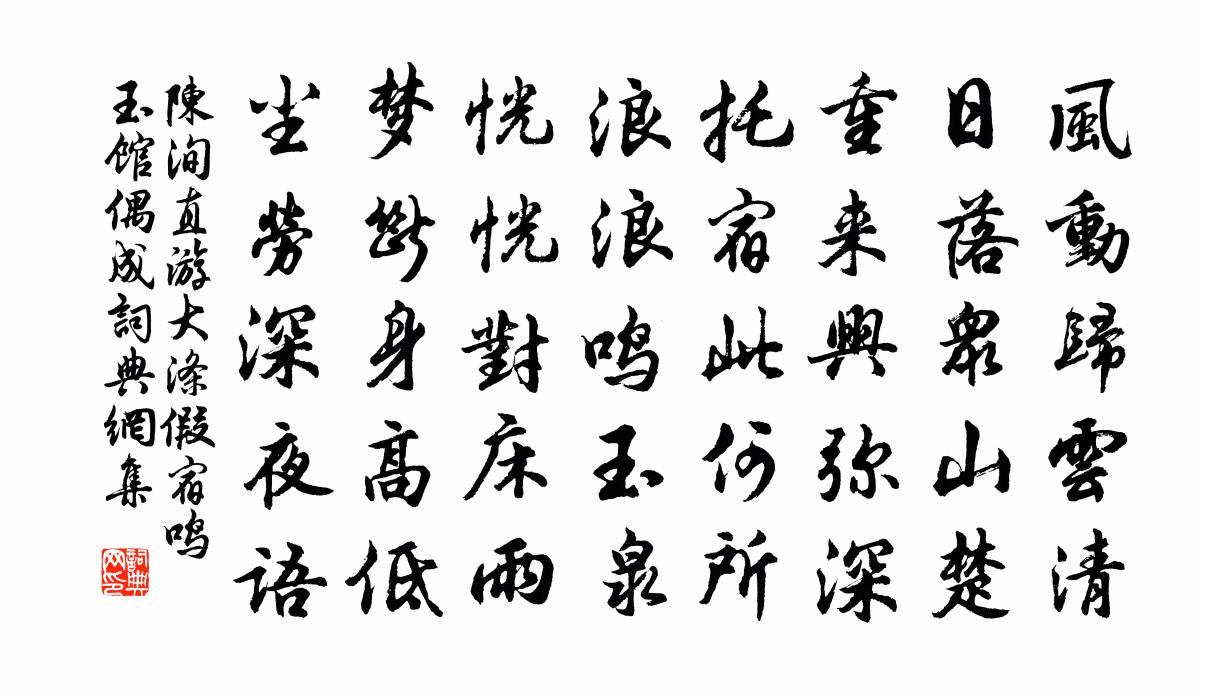 風動歸雲清
日落眾山楚
重来興弥深
托宿此何所
浪浪鸣玉泉
恍恍對床雨
梦斷身高低
尘劳深夜語
陳洵直游大涤假宿鸣
玉馆偶成詞典網集
詞典網印